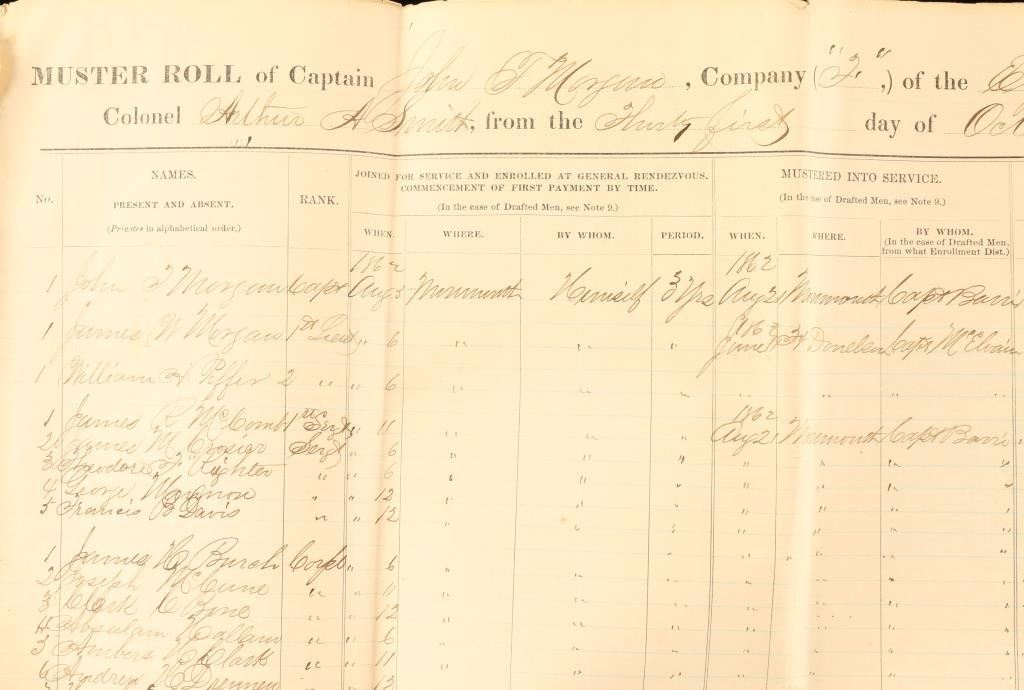 MUSTER ROLL of Captain John T Morgan, Company ("F",) of the
Colonel Arthur A Smith, from the Thirty first day of Oct
No. NAMES. PRESENT AND ABSENT. (Privates in alphabetical order.) RANK. JOINED FOR SERVICE AND ENROLLED AT GENERAL RENDEZVOUS. COMMENCEMENT OF FIRST PAYMENT BY TIME. (In the case of Drafted Men, see Note 9.) MUSTERED INTO SERVICE. (In the case of Drafted Men, see Note 9.)
WHEN. WHERE. BY WHOM. PERIOD. WHEN. WHERE. BY WHOM. (In the case of Drafted Men, from what Enrollment Dist.)
1862 1862
1 John T Morgan Capt Aug 5 Monmouth Himself 3 Yrs Aug 21 Monmouth Capt Barri
1863
1 James W Morgan 1st Lieut " 6 " " " June Ft Donelson Capt McElvain
1 William H Piffer 2 " " 6 " " " "
1862
1 James R McComb 1st Sergt " 11 " " " Aug 21 Monmouth Capt Barri
2 James M Crosier Sergt " 6 " " " " " "
3 Theodore F Righter " " 6 " " " " " "
4 George " " 12 " " " " " "
5 Francis B Davis " " 12 " " " " " "
1 James H Burch Corpl " 6 " " " " " "
2 Joseph McCune " " 11 " " " " " "
3 Clark C Bone " " 12 " " " " " "
4 Absalam Hallam " " 6 " " " " " "
5 Ambers Clark " " 11 " " " " " "
6 Andrew H Drennen " 13 " " " " " "